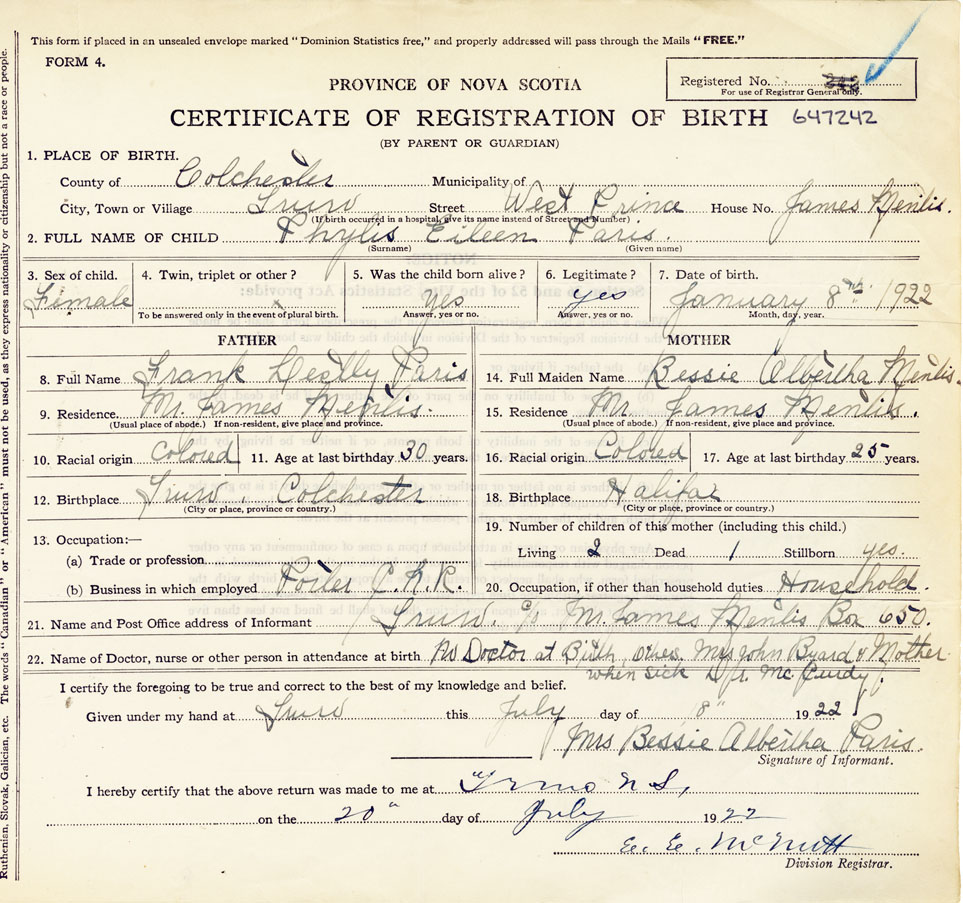 This form if placed in an unsealed envelope marked "Dominion Statistics free," and properly addressed will pass through the Mails "FREE."
FORM 4.
Registered No.
For use of Registrar General only.
PROVINCE OF NOVA SCOTIA
CERTIFICATE OF REGISTRATION OF BIRTH 647242
(BY PARENT OR GUARDIAN)
1. PLACE OF BIRTH.
County of Colchester Municipality of
City, Town or Village Truro Street West Prince House No. James Menlis.
(If birth occurred in a hospital, give its name instead of Street and Number)
2. FULL NAME OF CHILD Phylis Eileen Paris.
(Surname) (Given name)
3. Sex of child. 4. Twin, triplet or other? 5. Was the child born alive? 6. Legitimate? 7. Date of birth.
Female yes yes January 8th 1922
To be answered only in the event of plural birth. Answer, yes or no. Answer, yes or no. Month, day, year.
FATHER
8. Full Name Frank Paris
9. Residence. Mr. James Menlis.
(Usual place of abode.) If non-resident, give place and province.
10. Racial origin Colored 11. Age at last birthday 30 years.
12. Birthplace Truro. Colchester
(City or place, province or country.)
13. Occupation:—
(a) Trade or profession
(b) Business in which employed Porter C.N.R.
MOTHER
14. Full Maiden Name Bessie Albertha Menlis.
15. Residence Mr. James Menlis.
(Usual place of abode.) If non-resident, give place and province.
16. Racial origin Colored 17. Age at last birthday 25 years.
18. Birthplace Halifax
(City or place, province or country.)
19. Number of children of this mother (including this child.)
Living 2 Dead 1 Stillborn yes.
20. Occupation, if other than household duties Household.
21. Name and Post Office address of Informant Truro. c/o Mr. James Menlis Box 650.
22. Name of Doctor, nurse or other person in attendance at birth No Doctor at Birth, Mrs John Byard & Mother
when sick Dr. McCurdy.
I certify the foregoing to be true and correct to the best of my knowledge and belief.
Given under my hand at Truro this July day of 8" 1922
Mrs Bessie Albertha Paris.
Signature of Informant.
I hereby certify that the above return was made to me at Truro N S,
on the 20" day of July 1922
E. E. McNutt
Division Registrar.
Ruthenian, Slovak, Galician, etc. The words "Canadian" or "American" must not be used, as they express nationality or citizenship but not a race or people.